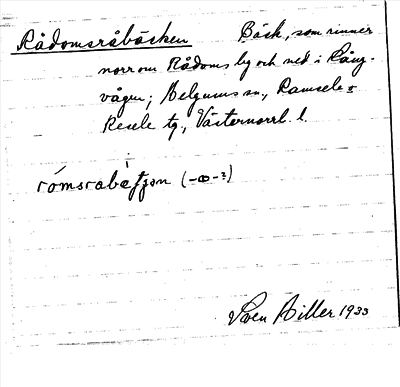 Rådomsråbäcken Bäck, som rinner
norr om Rådoms by och ned i Lång-
vågen; Helgums sn., Ramsele o
Resele tg., Västernorrl. l.
rómsrabæ̀ʃʃən (-ꝏ-?)
Sven Hiller 1933